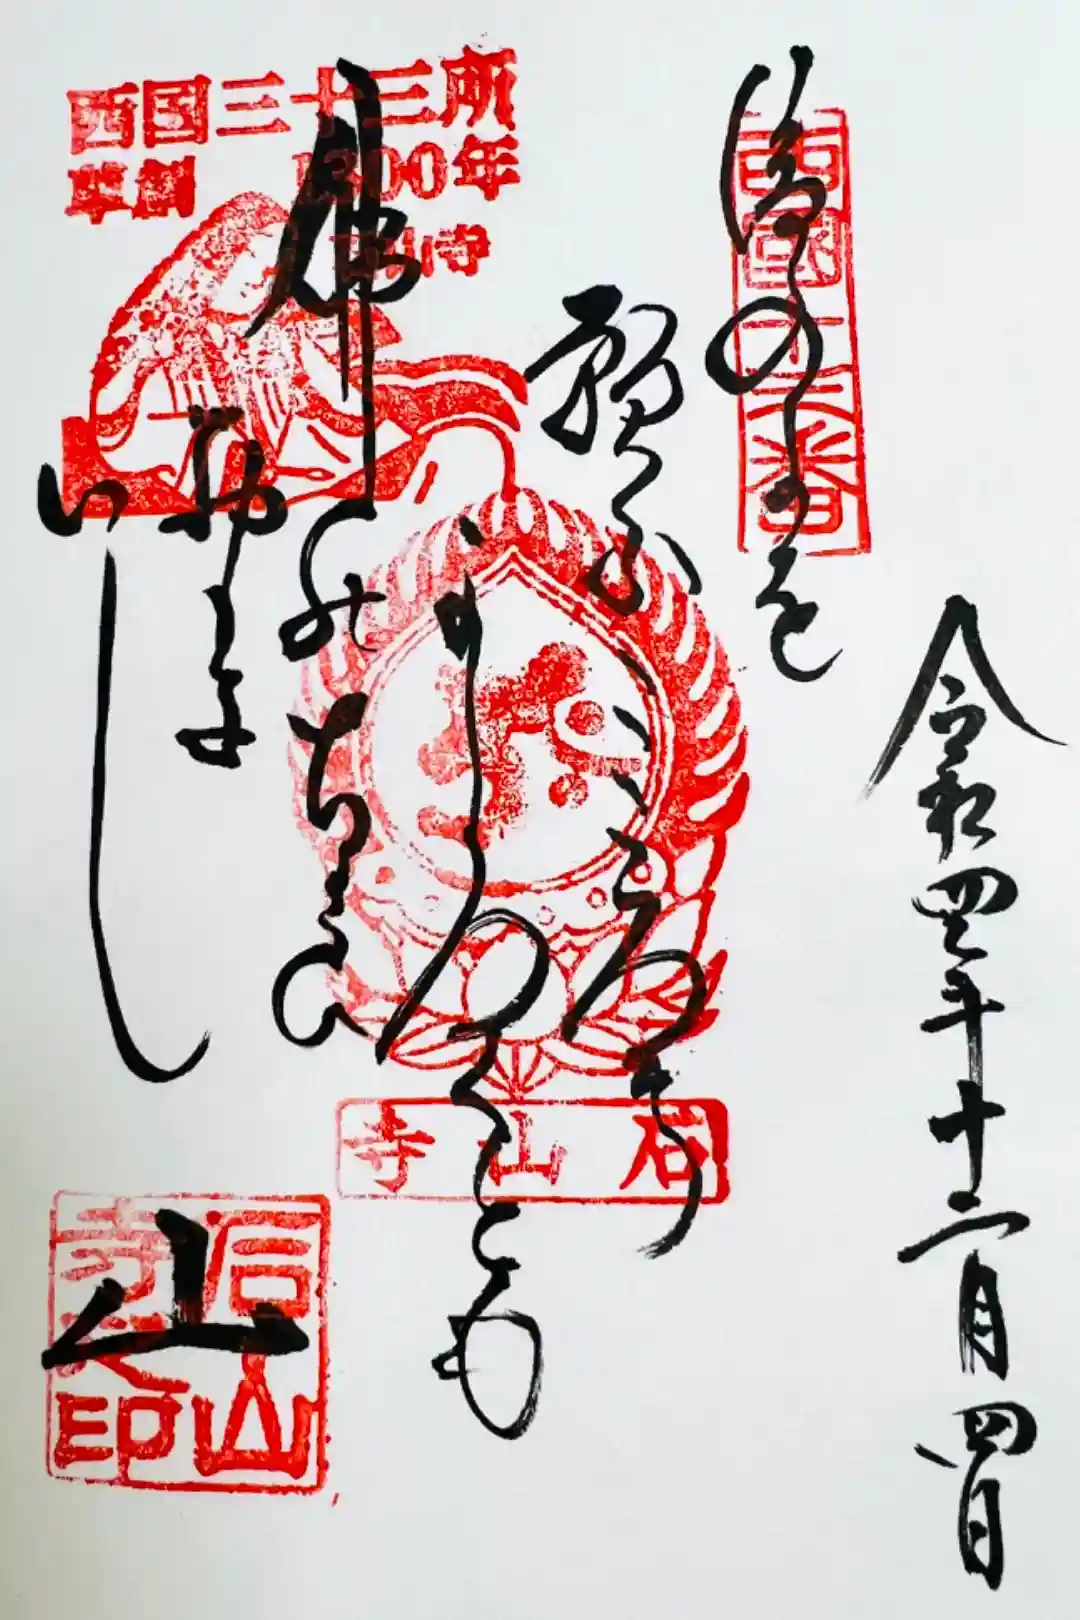 令和四年十二月四日
西國十三番
後の世を
願ふこゝろハ
かろくとも
佛のちかひ
おもき
いし
山
西国三十三所
草創1300年
石山寺
石山寺